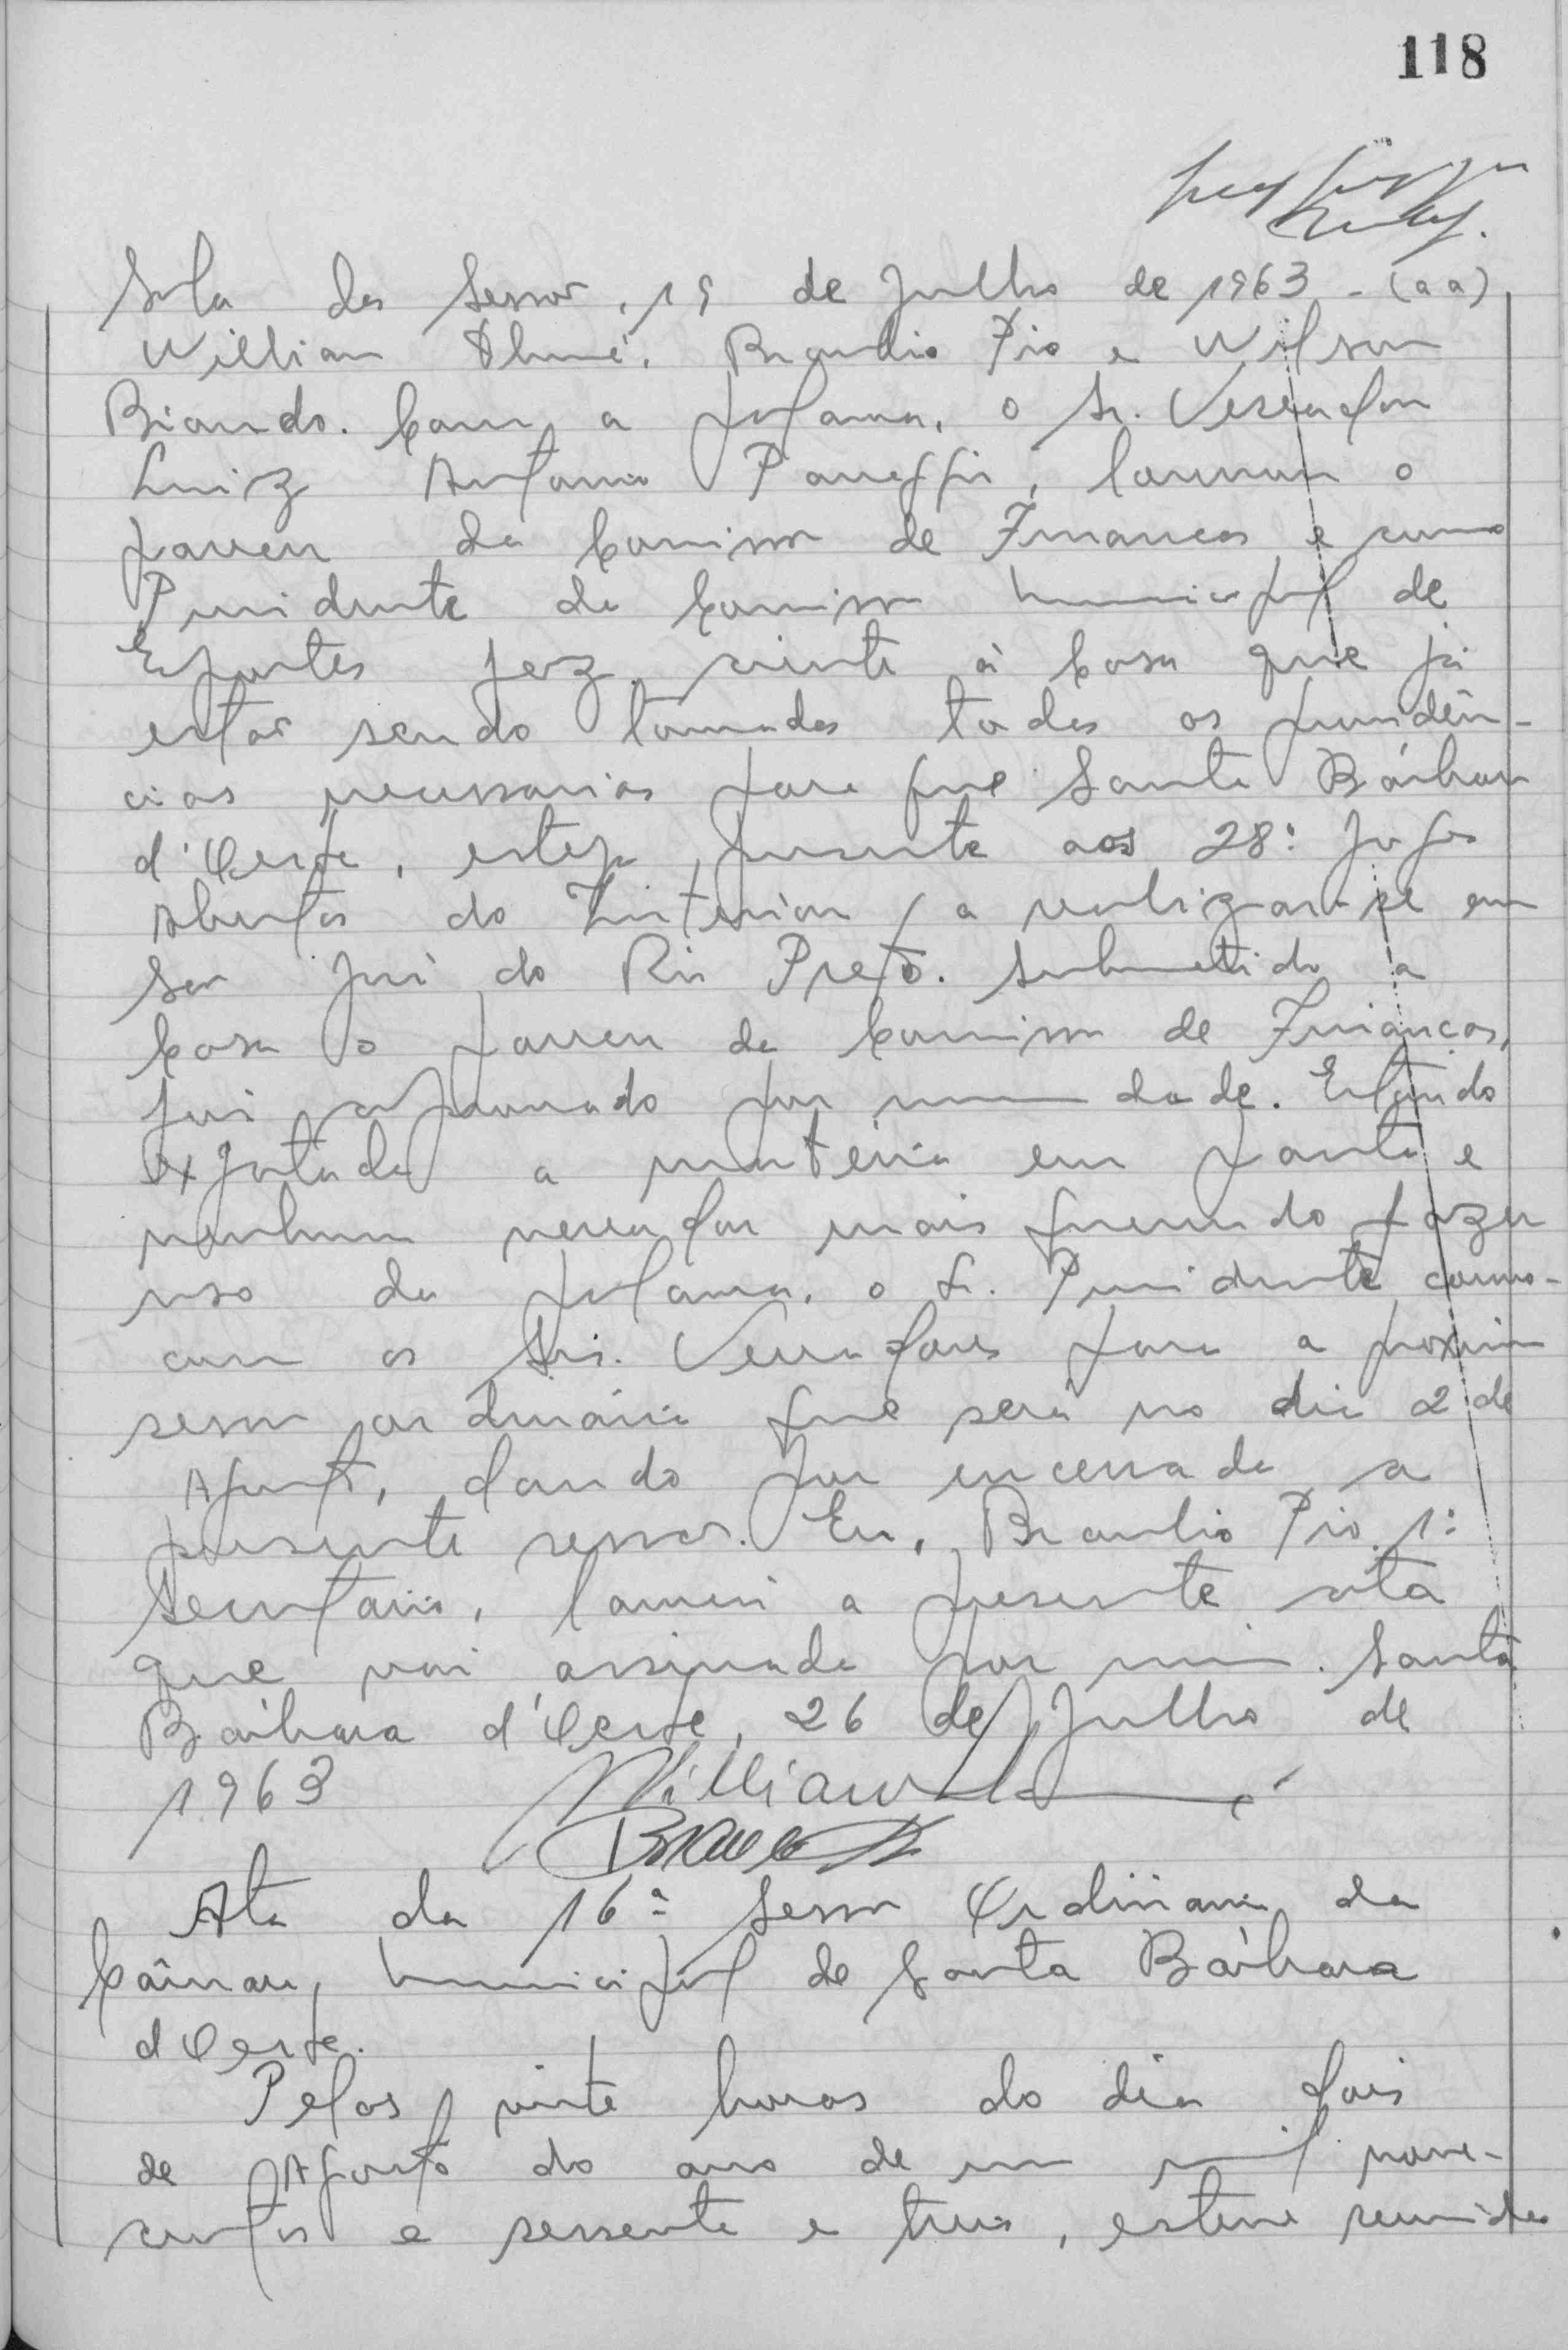 118
Sala das Sessões, 19 de Julho de 1963 - (aa)
Willian Thomé, Braulio Pio e Wilson
Biando. Com a palavra, o Sr. Vereador
Luiz Antonio Panaggio, o
parecer da Comissão de Finanças e como
Presidente da Comissão Municipal de
Esportes fez ciente à Casa que já
estão sendo tomadas todas as providên-
cias necessarias para que Santa Bárbara
d'Oeste, esteja presente aos 28º Jogos
Abertos do Interior, a realizar-se em
São José do Rio Preto. Submetido a
Casa o parecer da Comissão de Finanças,
foi aprovado por unanimidade. Estando
exgotada a matéria em pauta e
nenhum vereador mais querendo fazer
uso da palavra, o Sr. Presidente convo-
cou os Srs. Vereadores para a proxima
sessão ordinária que será no dia 2 de
Agosto, dando por encerrada a
presente sessão. Eu, Braulio Pio, 1º
Secretario, lavrei a presente ata
que vai assinada por mim. Santa
Bárbara d'Oeste, 26 de Julho de
1963
Ata da 16ª Sessão Ordinaria da
Câmara Municipal de Santa Bárbara
d'Oeste.
Pelas vinte horas do dia dois
de Agosto do ano de um mil nove-
centos e sessenta e tres, esteve reunida